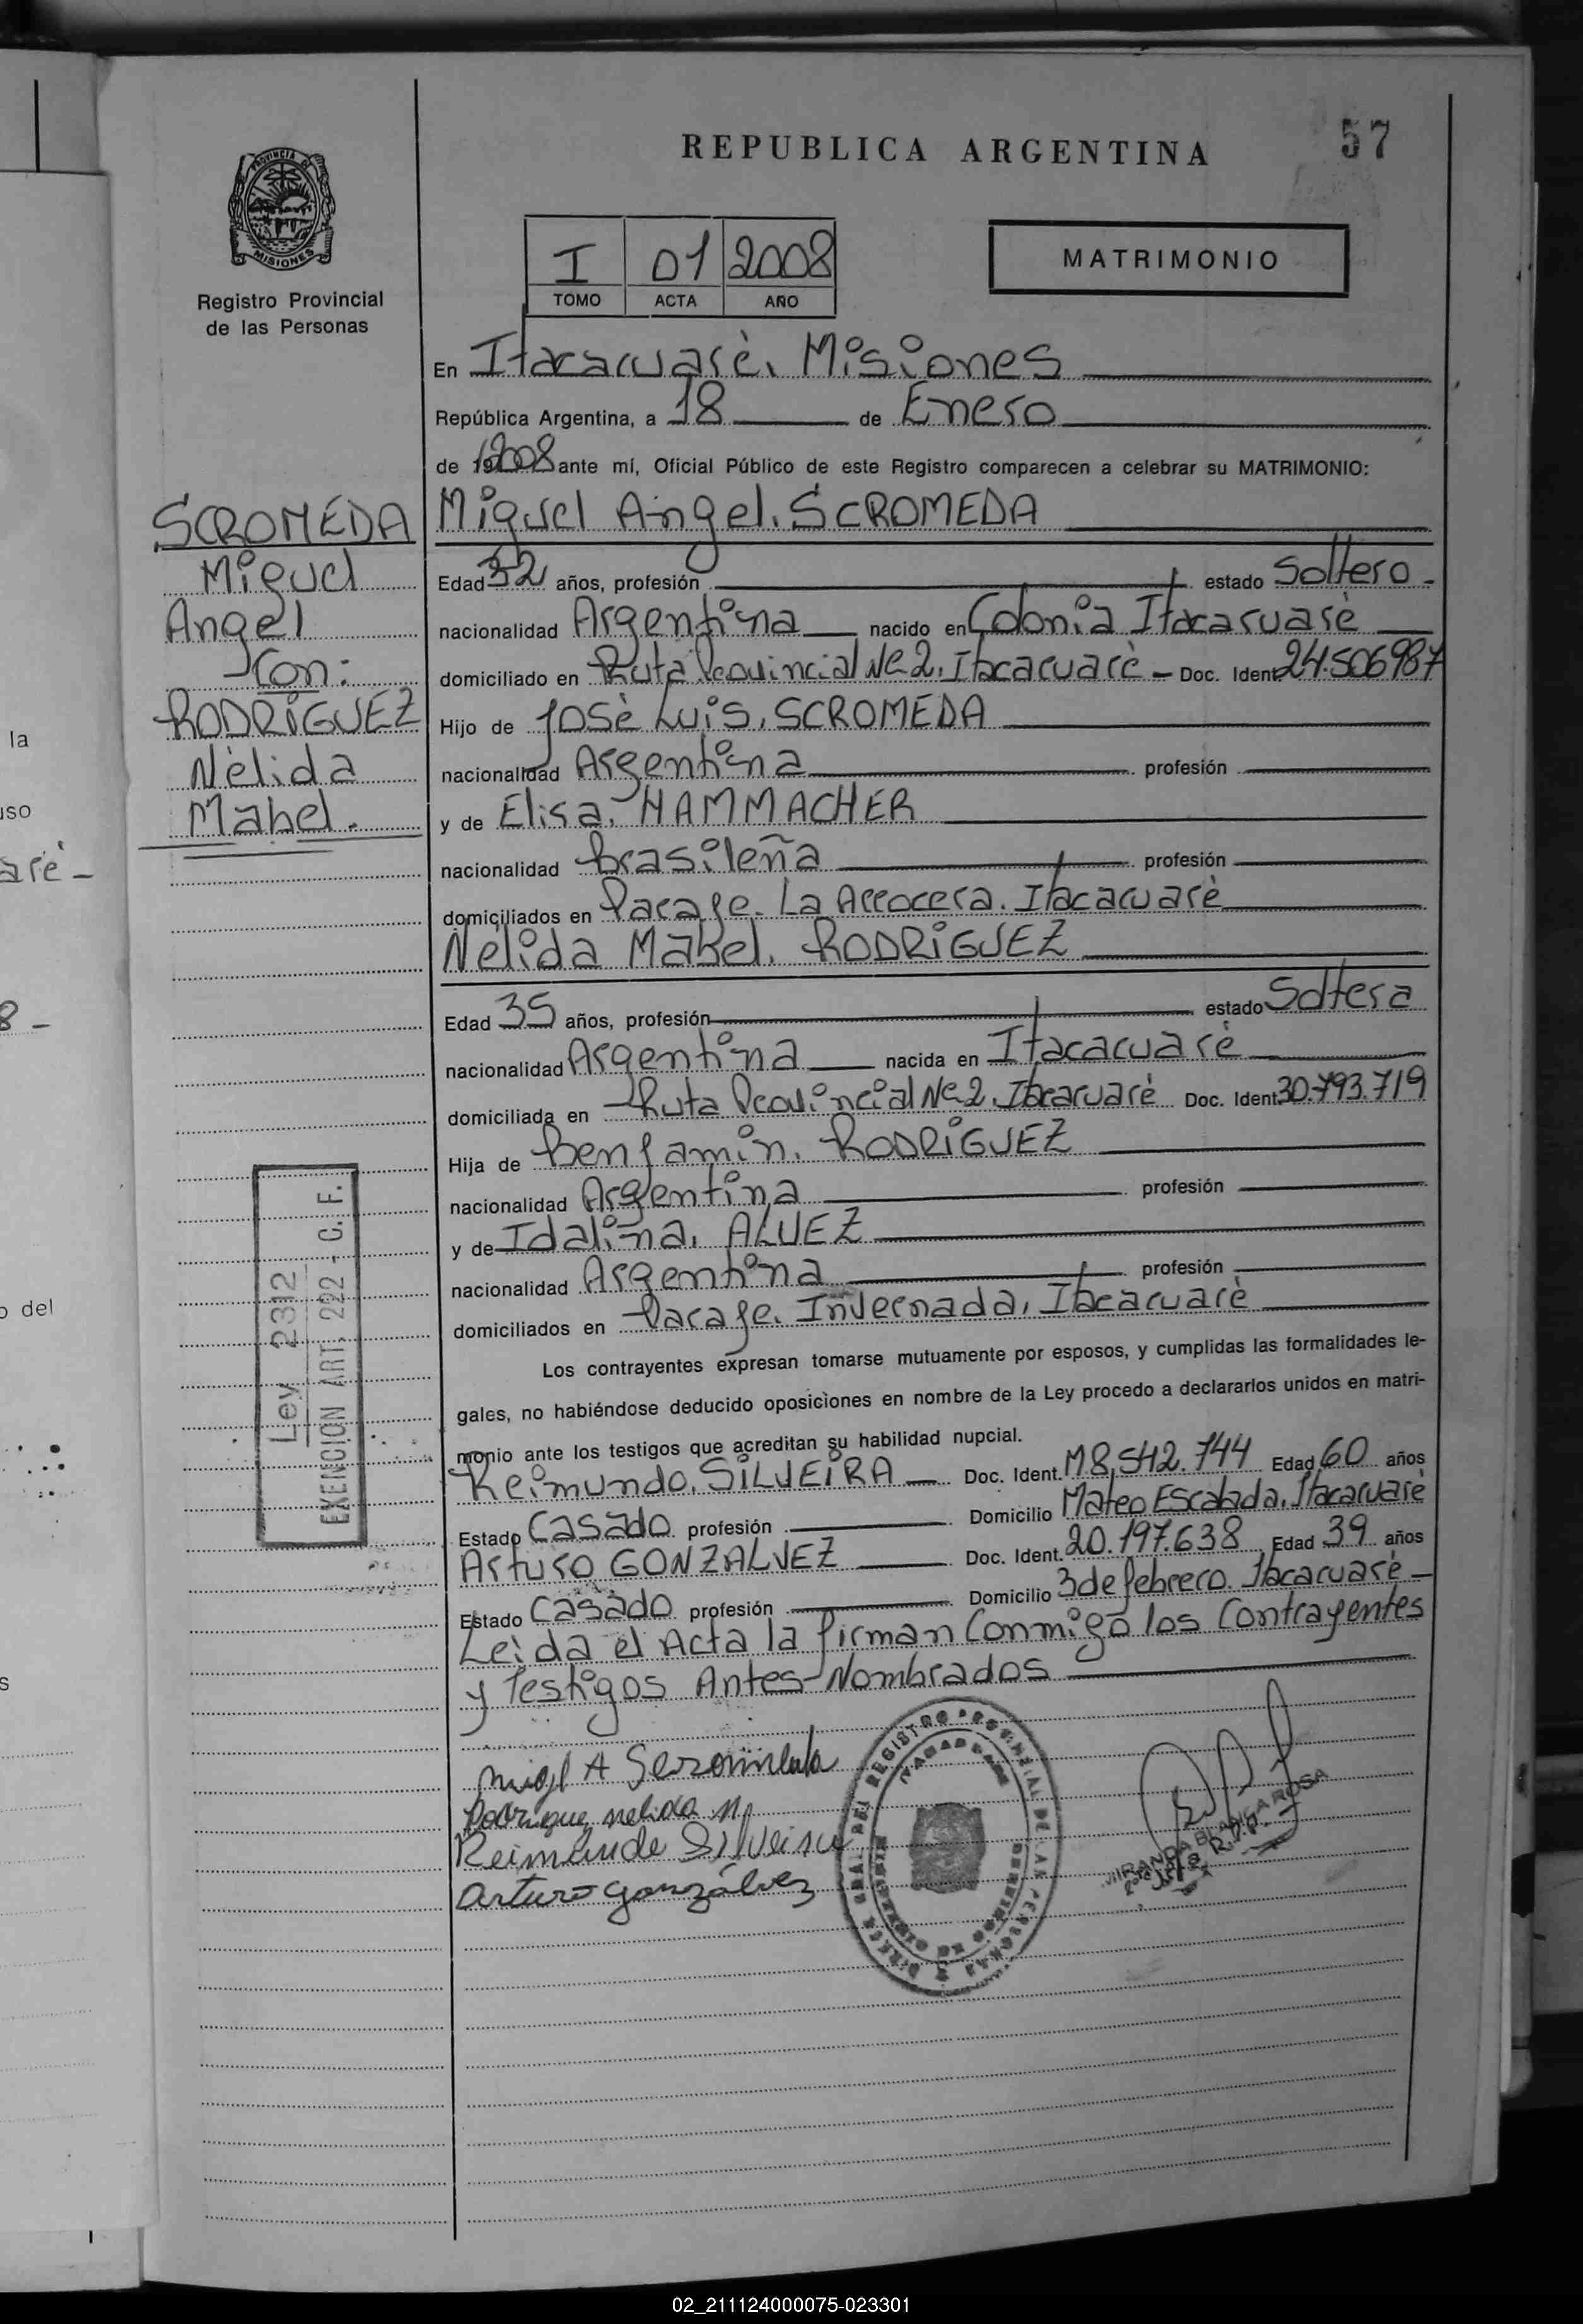 REPUBLICA ARGENTINA
57
PROVINCIA D
MISIONES
Registro Provincial
de las Personas
I 01 2008
TOMO ACTA AÑO
MATRIMONIO
En Itacaruarè, Misiones
República Argentina, a 18 de Enero
de 2008 ante mí, Oficial Público de este Registro comparecen a celebrar su MATRIMONIO:
SCROMEDA
Miguel
Angel
Con:
RODRIGUEZ
Nèlida
Mabel.
Miguel Angel, SCROMEDA
Edad 32 años, profesión estado Soltero -
nacionalidad Argentina nacido en Colonia Itacaruarè
domiciliado en Ruta Provincial Nº 2, Itacaruarè - Doc. Ident. 24.506987
Hijo de Josè Luis, SCROMEDA
nacionalidad Argentina profesión
y de Elisa, HAMMACHER
nacionalidad Brasileña profesión
domiciliados en Paraje. La Arrocera. Itacaruarè
Nelida Mabel, RODRIGUEZ
Edad 35 años, profesión estado Soltera
nacionalidad Argentina nacida en Itacaruarè
domiciliada en Ruta Provincial Nº 2, Itacaruarè Doc. Ident. 30.793.719
Hija de Benjamin, RODRIGUEZ
nacionalidad Argentina profesión
y de Idalina, ALVEZ
nacionalidad Argentina profesión
domiciliados en Paraje. Invernada, Itacaruarè
Ley 2312
EXENCION ART. 222 - C. F.
Los contrayentes expresan tomarse mutuamente por esposos, y cumplidas las formalidades le-
gales, no habiéndose deducido oposiciones en nombre de la Ley procedo a declararlos unidos en matri-
monio ante los testigos que acreditan su habilidad nupcial.
Reimundo, SILVEIRA - Doc. Ident. M8.542.744 Edad 60 años
Estado Casado profesión Domicilio Mateo Escalada, Itacaruarè
Arturo GONZALVEZ Doc. Ident. 20.197.638 Edad 39 años
Estado Casado profesión Domicilio 3 de febrero. Itacaruarè -
Leida el Acta la firman Conmigo los Contrayentes
y Testigos Antes-Nombrados
Migl A Scromeda
Rodriguez nelida M
Reimundo Silveira
Arturo Gonzálvez
MIRANDA BLANCA ROSA
la
uso
arè -
8 -
o del
s
02_211124000075-023301